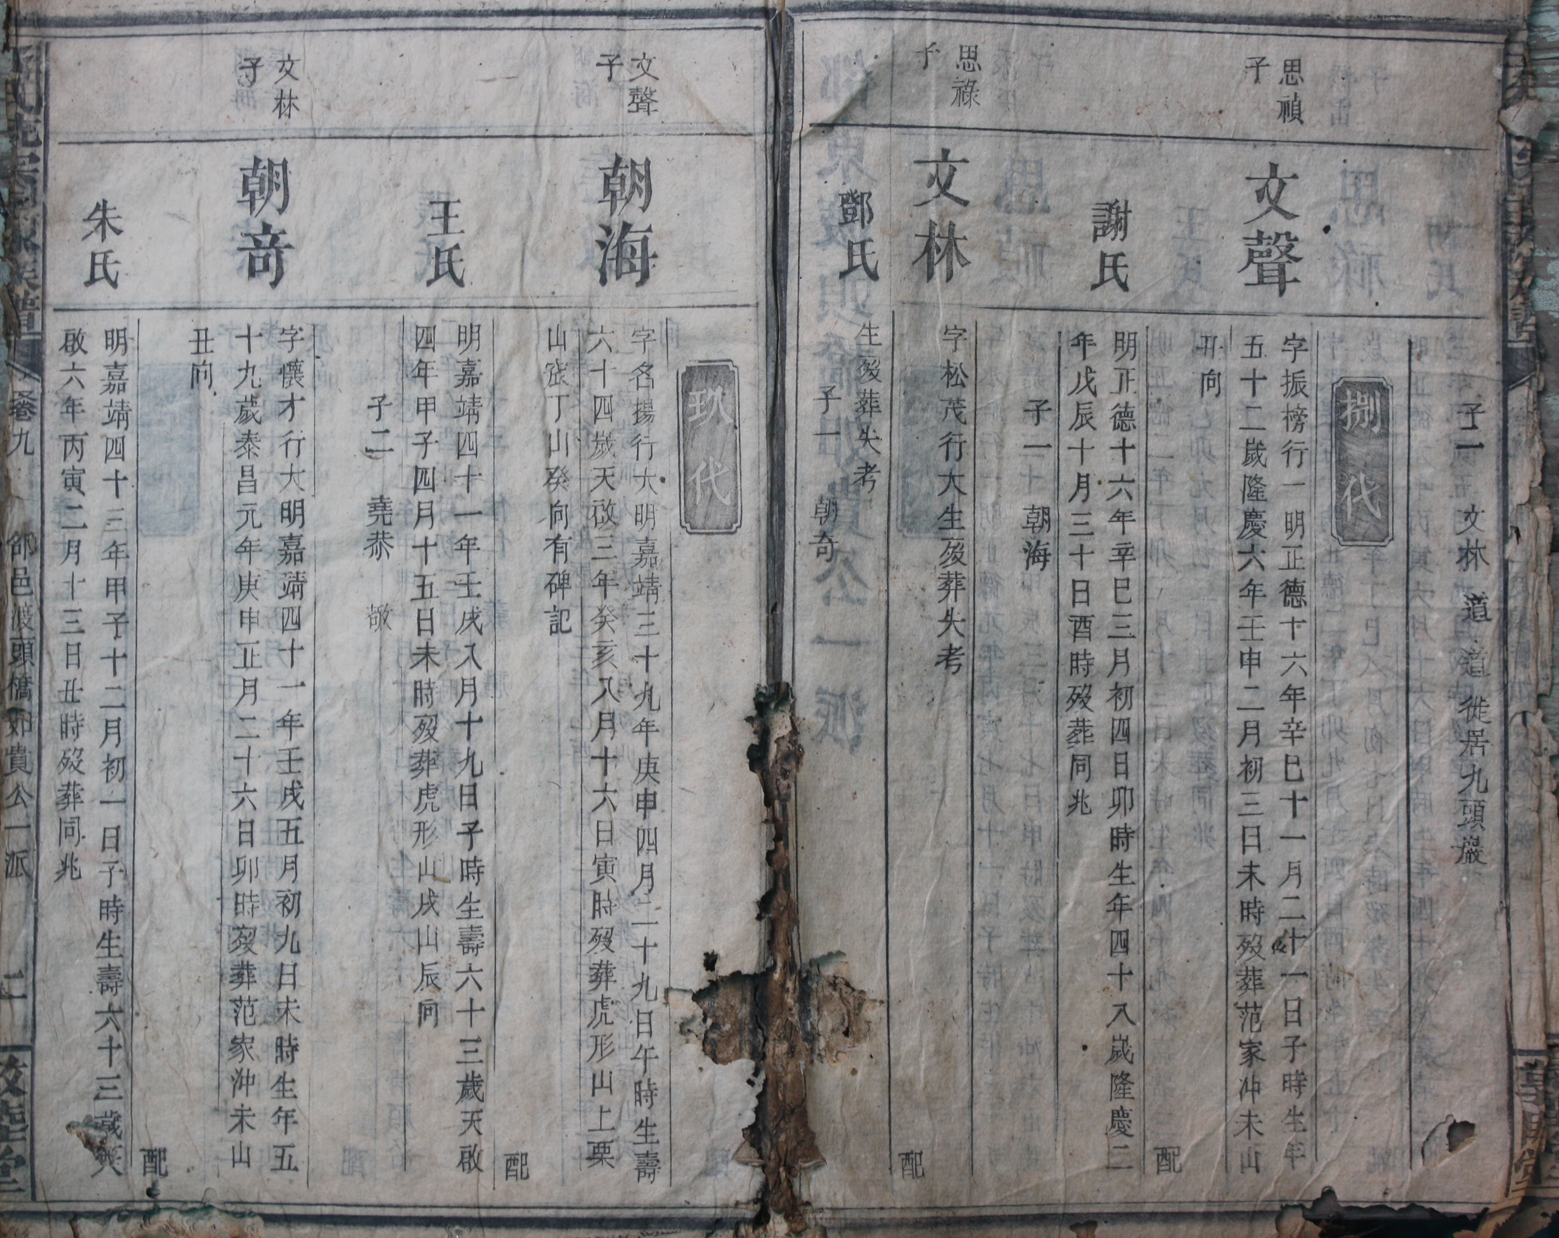 子一 文林 道 道 從居九頭巖
捌代
思禎
子
文聲
字振榜行一明正德十六年辛巳十一月二十一日子時生年
五十二歲隆慶六年壬申二月初三日未時歿葬范家冲未山
丑向
配
謝氏
明正德十六年辛巳三月初四日卯時生年四十八歲隆慶二
年戊辰十月三十日酉時歿葬同兆
子一 朝海
思祿
子
文林
字松茂行大生歿葬失考
配
鄧氏
生歿葬失考
子一 朝奇
玖代
文聲
子
朝海
字名揚行大明嘉靖三十九年庚申四月二十九日午時生壽
六十四歲天啟三年癸亥八月十六日寅時歿葬虎形山上栗
山嵅丁山癸向有碑記
配
王氏
明嘉靖四十一年壬戌八月十九日子時生壽六十三歲天啟
四年甲子四月十五日未時歿葬虎形山戌山辰向
子二 堯恭 敬
文林
子
朝奇
字懷才行大明嘉靖四十一年壬戌五月初九日未時生年五
十九歲泰昌元年庚申正月二十六日卯時歿葬范家沖未山
丑向
配
朱氏
明嘉靖四十三年甲子十二月初一日子時生壽六十三歲天
啟六年丙寅二月十三日丑時歿葬同兆
卷九 邵邑皮頭橋如貴公一派 二